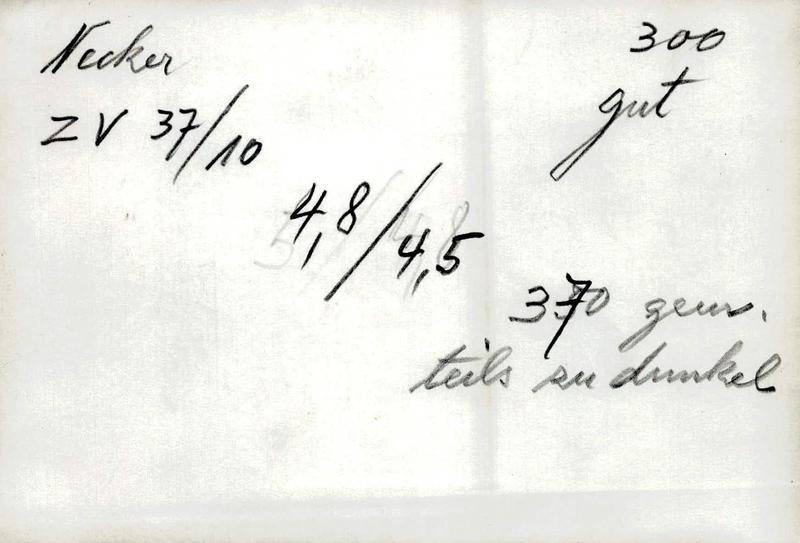 Necker
300
ZV 37/10
gut
4,8/4,5
370 gem.
teils zu dunkel